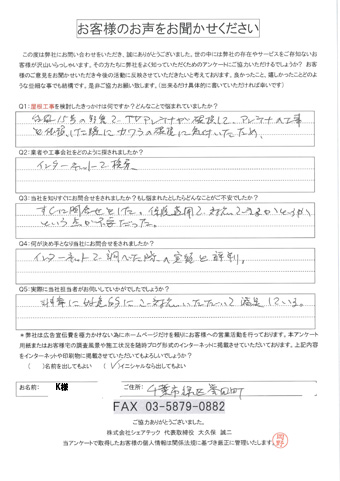 お客様のお声をお聞かせください
この度は弊社にお問い合わせをいただき、誠にありがとうございました。世の中には弊社の存在やサービスをご存知ないお
客様が沢山いらっしゃいます。その方たちに弊社をよく知っていただくためのアンケートにご協力いただけるでしょうか？お
客様のご意見をお聞かせいただき今後の活動に反映させていただきたいと考えております。良かったこと、嬉しかったことどのよ
うな些細な事でも結構です。是非ご協力お願い致します。（出来るだけ具体的に書いていただければ幸いです）
Q1：屋根工事を検討したきっかけは何ですか？どんなことで悩まれていましたか？
台風15号の影響でTVアンテナが破損して、アンテナの工事
を依頼した際にカワラの破損に気付いたため。
Q2：業者や工事会社をどのように探されましたか？
インターネットで検索
Q3：当社を知りすぐにお問合せをされましたか？もし悩まれたとしたらどんなことがご不安でしたか？
すぐに問合せをした。保険適用で、対応できるかどうか
という点が不安だった。
Q4：何が決め手となり当社にお問合せをされましたか？
インターネットで調べた時の実績と評判。
Q5：実際に当社担当者がお伺いしていかがでしたでしょうか？
非常に好意的にご対応いただいて満足している。
＊弊社は広告宣伝費を極力かけない為にホームページだけを頼りにお客様への営業活動を行っております。本アンケート
用紙またはお客様宅での調査風景や施工状況を随時ブログ形式のインターネットに掲載させていただいております。上記内容
をインターネットや印刷物に掲載させていただいてもよろしいでしょうか？
（ ）名前を出してもよい （✓）イニシャルなら出してもよい
お名前： K様 ご住所： 千葉市緑区誉田町
FAX 03-5879-0882
ご協力ありがとうございました。
株式会社シェアテック 代表取締役 大久保 誠二
当アンケートで取得したお客様の個人情報は関係法規に基づき厳正に管理いたします。